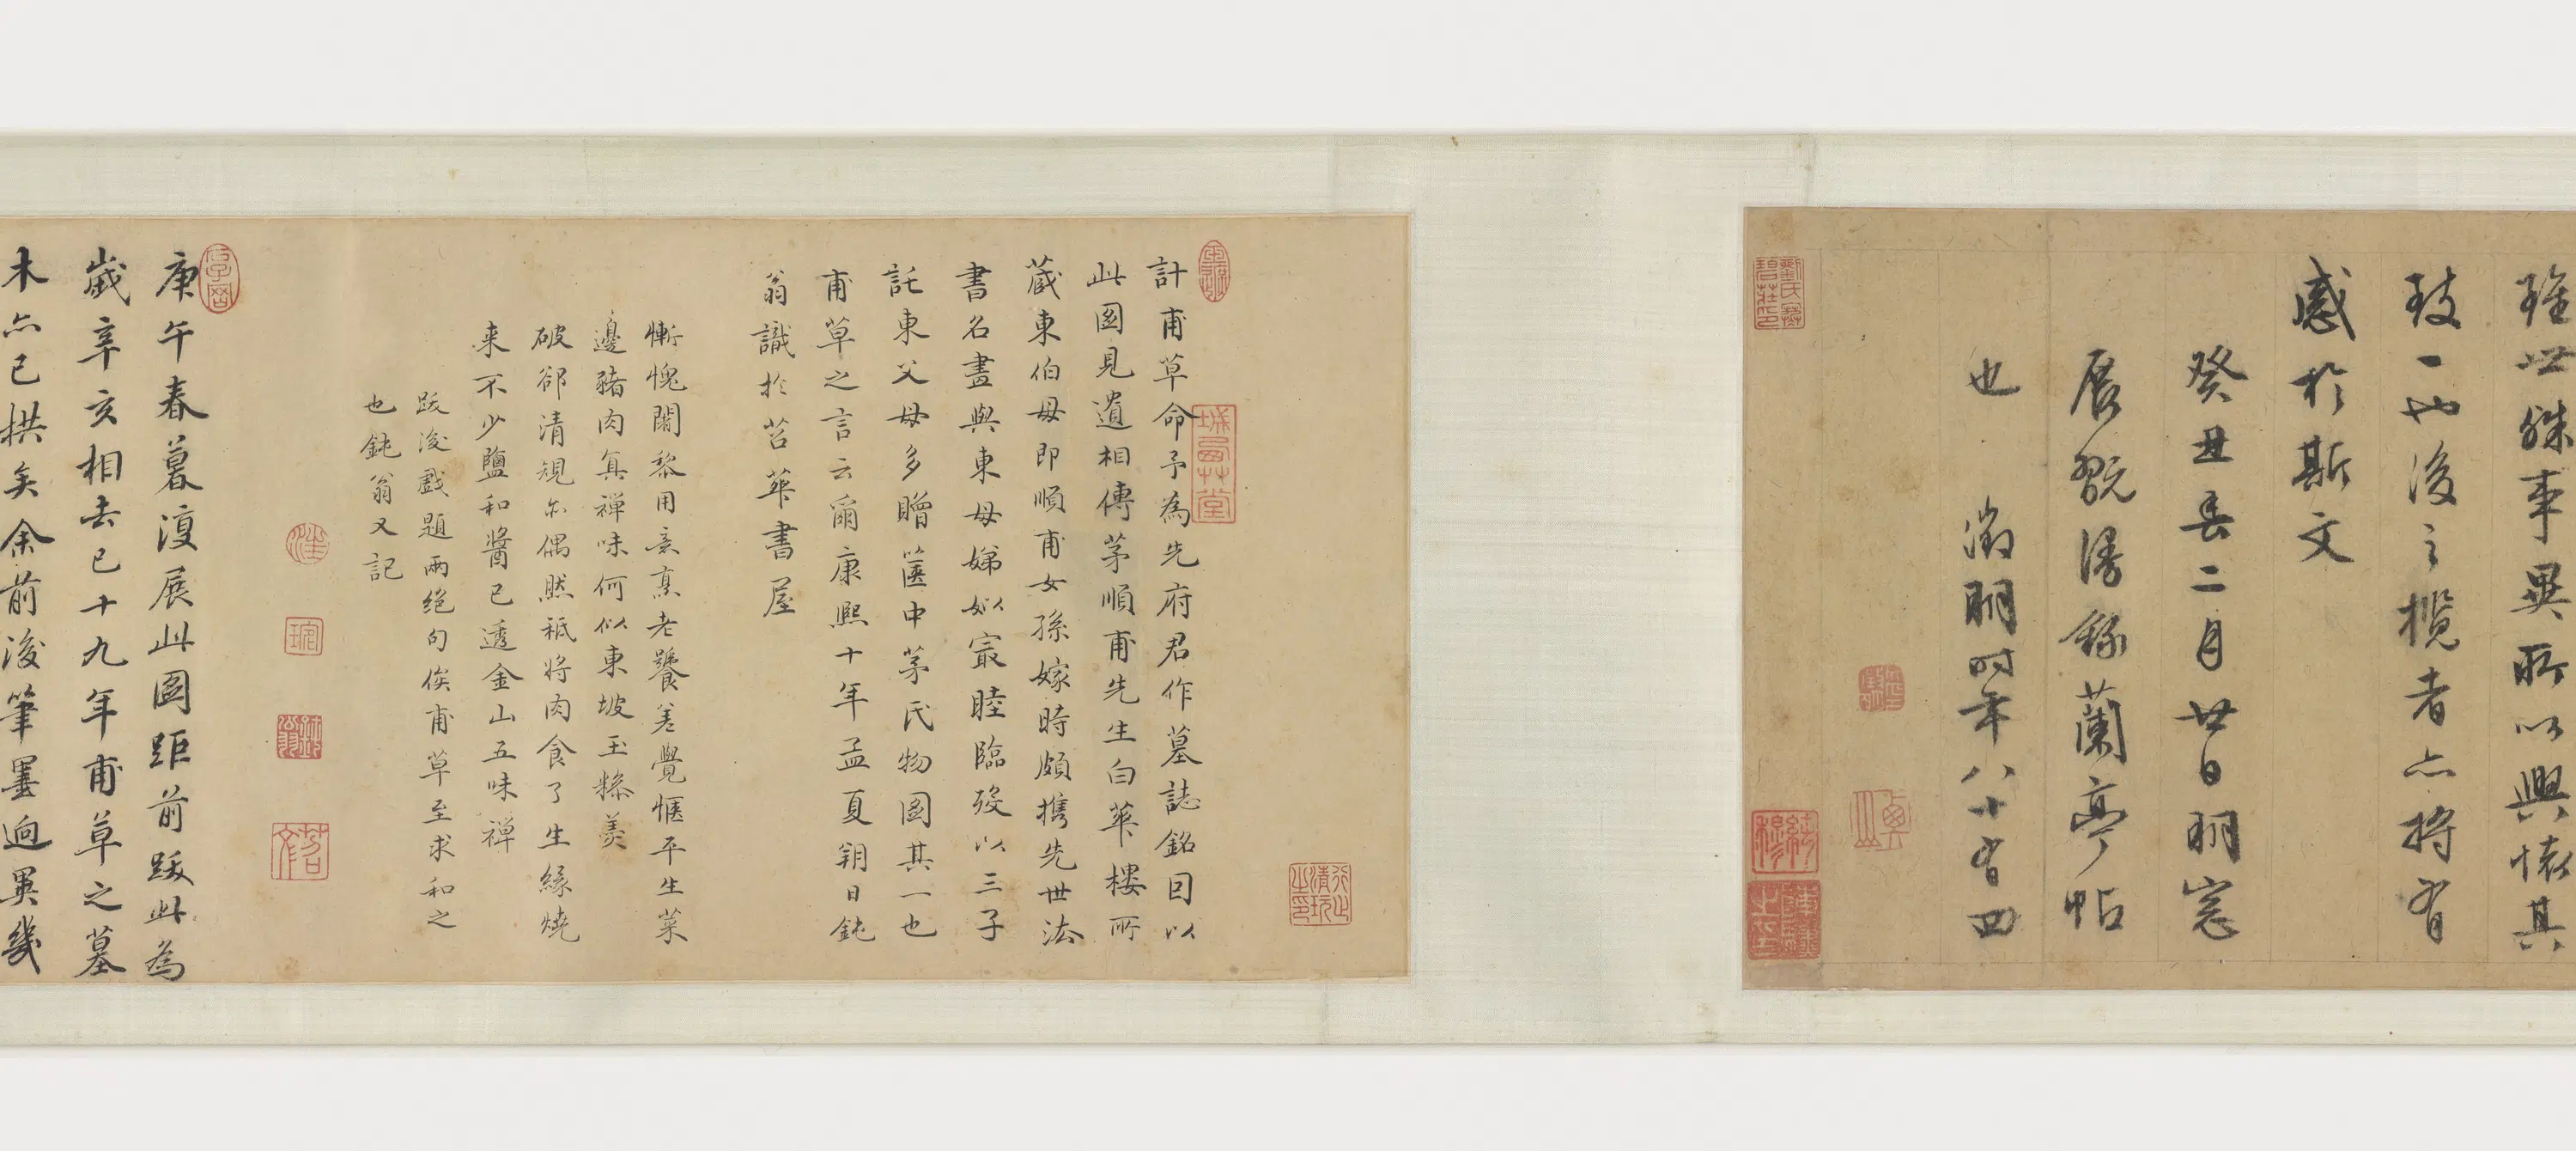 雖世殊事異所以興懷其
致一也後之攬者亦將有
感於斯文
癸丑春二月廿日明窓
展翫漫錄蘭亭帖
也 徵明時年八十有四
計甫草命予為先府君作墓誌銘目以
此圖見遺相傳茅順甫先生白華樓所
藏東伯母即順甫女孫嫁時頗攜先世法
書名畫與東母娣姒寂睦臨歿以三子
託東父母多贈篋中茅氏物圖其一也
甫草之言云爾康熙十年孟夏朔日鈍
翁識於苕華書屋
慚愧闍黎用意烹老饕差覺愜平生菜
邊豬肉真禪味何似東坡玉糝羹
破卻清規亦偶然秖將肉食了生緣燒
来不少鹽和醬已透金山五味禪
跋後戲題兩絕句俟甫草至求和之
也鈍翁又記
庚午春暮復展此圖距前跋此為
歲辛亥相去已十九年甫草之墓
木亦已拱矣余前後筆墨逈異幾